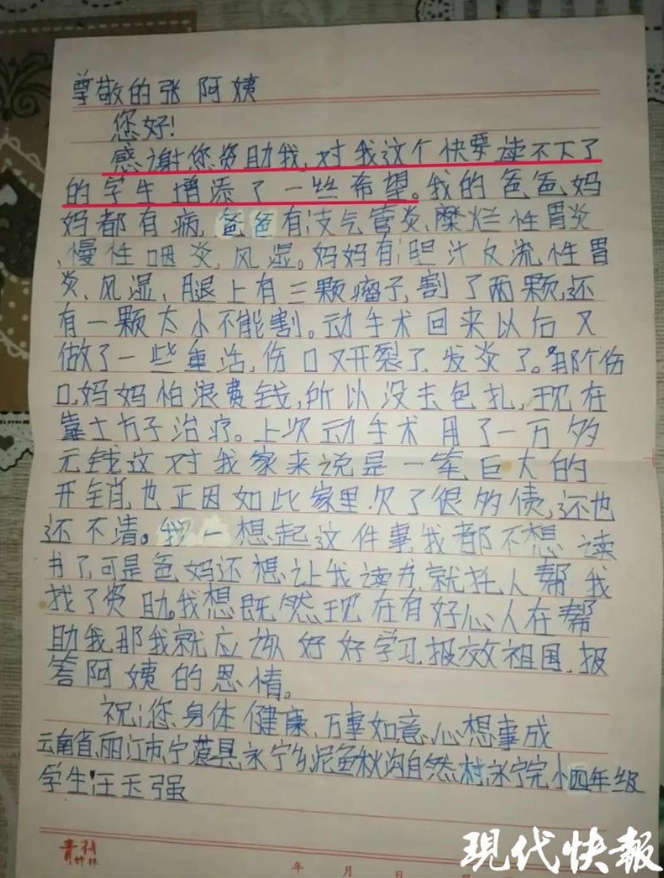 尊敬的张阿姨
您好!
感谢您资助我,对我这个快要读不下了
的学生增添了一些希望。我的爸爸妈
妈都有病,爸爸有支气管炎、糜烂性胃炎
、慢性咽炎、风湿。妈妈有胆汁反流性胃
炎、风湿、腿上有三颗瘤子,割了两颗,还
有一颗太小不能割。动手术回来以后又
做了一些重活,伤口又开裂了,发炎了。那个伤
口,妈妈怕浪费钱,所以没去包扎,现在
靠土方子治疗。上次动手术用了一万多
元钱这对我家来说是一笔巨大的
开销,也正因如此家里欠了很多债,还也
还不清。我一想起这件事我都不想读
书了,可是爸妈还想让我读书,就托人帮我
找了资助。我想既然现在有好心人在帮
助我那我就应该好好学习,报效祖国,报
答阿姨的恩情。
祝:您身体健康,万事如意,心想事成
云南省,丽江市,宁蒗县,永宁乡,泥鱼秋沟自然村,永宁完小四年级
学生:汪玉强
青竹林
年 月 日
现代快报